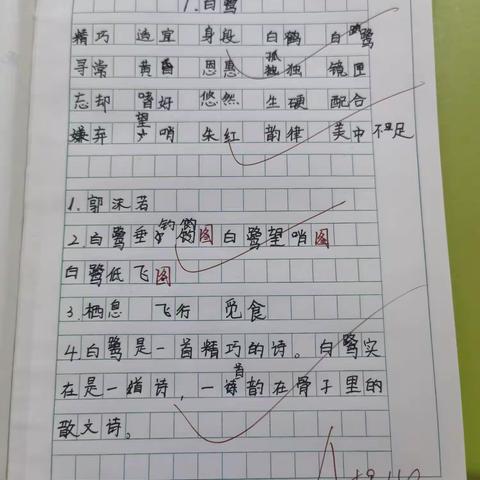 1.白鹭
精巧 适宜 身段 白鹤 白鹭
寻常 黄昏 恩惠 孤独 镜匣
忘却 嗜好 悠然 生硬 配合
嫌弃 望哨 朱红 韵律 美中不足
1.郭沫若
2.白鹭垂钓图 白鹭望哨图
白鹭低飞图
3.栖息 飞行 觅食
4.白鹭是一首精巧的诗。白鹭实
在是一首诗,一首韵在骨子里的
散文诗。